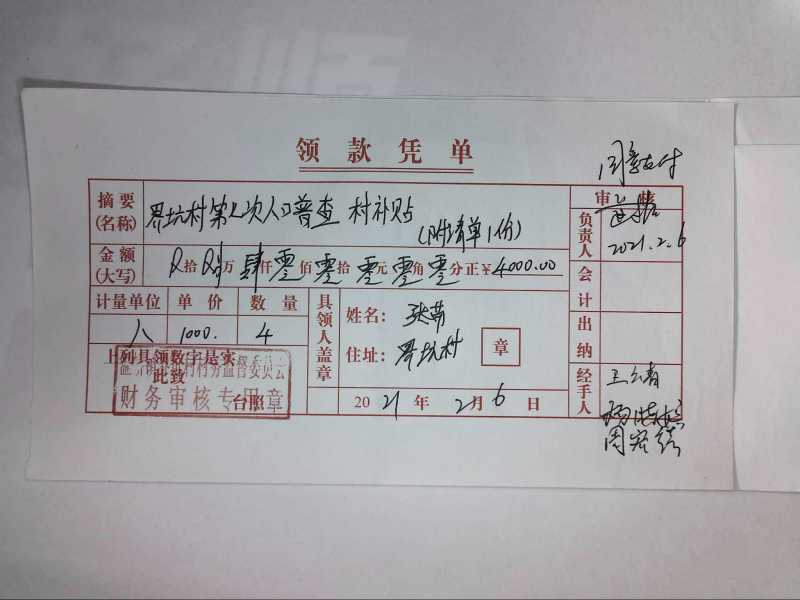 领款凭单
同意支付
摘要(名称) 界坑村第七次人口普查 村补贴
(附清单1份)
审批
负责人
2021.2.6
金额(大写) 拾 万 肆仟零佰零拾零元零角零分正¥4000.00
会计
计量单位 单价 数量
人 1000. 4
具领人盖章
姓名:
住址: 界坑村
章
出纳
上列具领数字是实
此致
台照
财务审核专用章
2021年2月6日
经手人